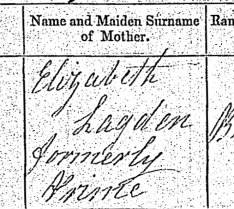 Name and Maiden Surname
of Mother.
Ran
Elizabeth
Lagden
formerly
Prime